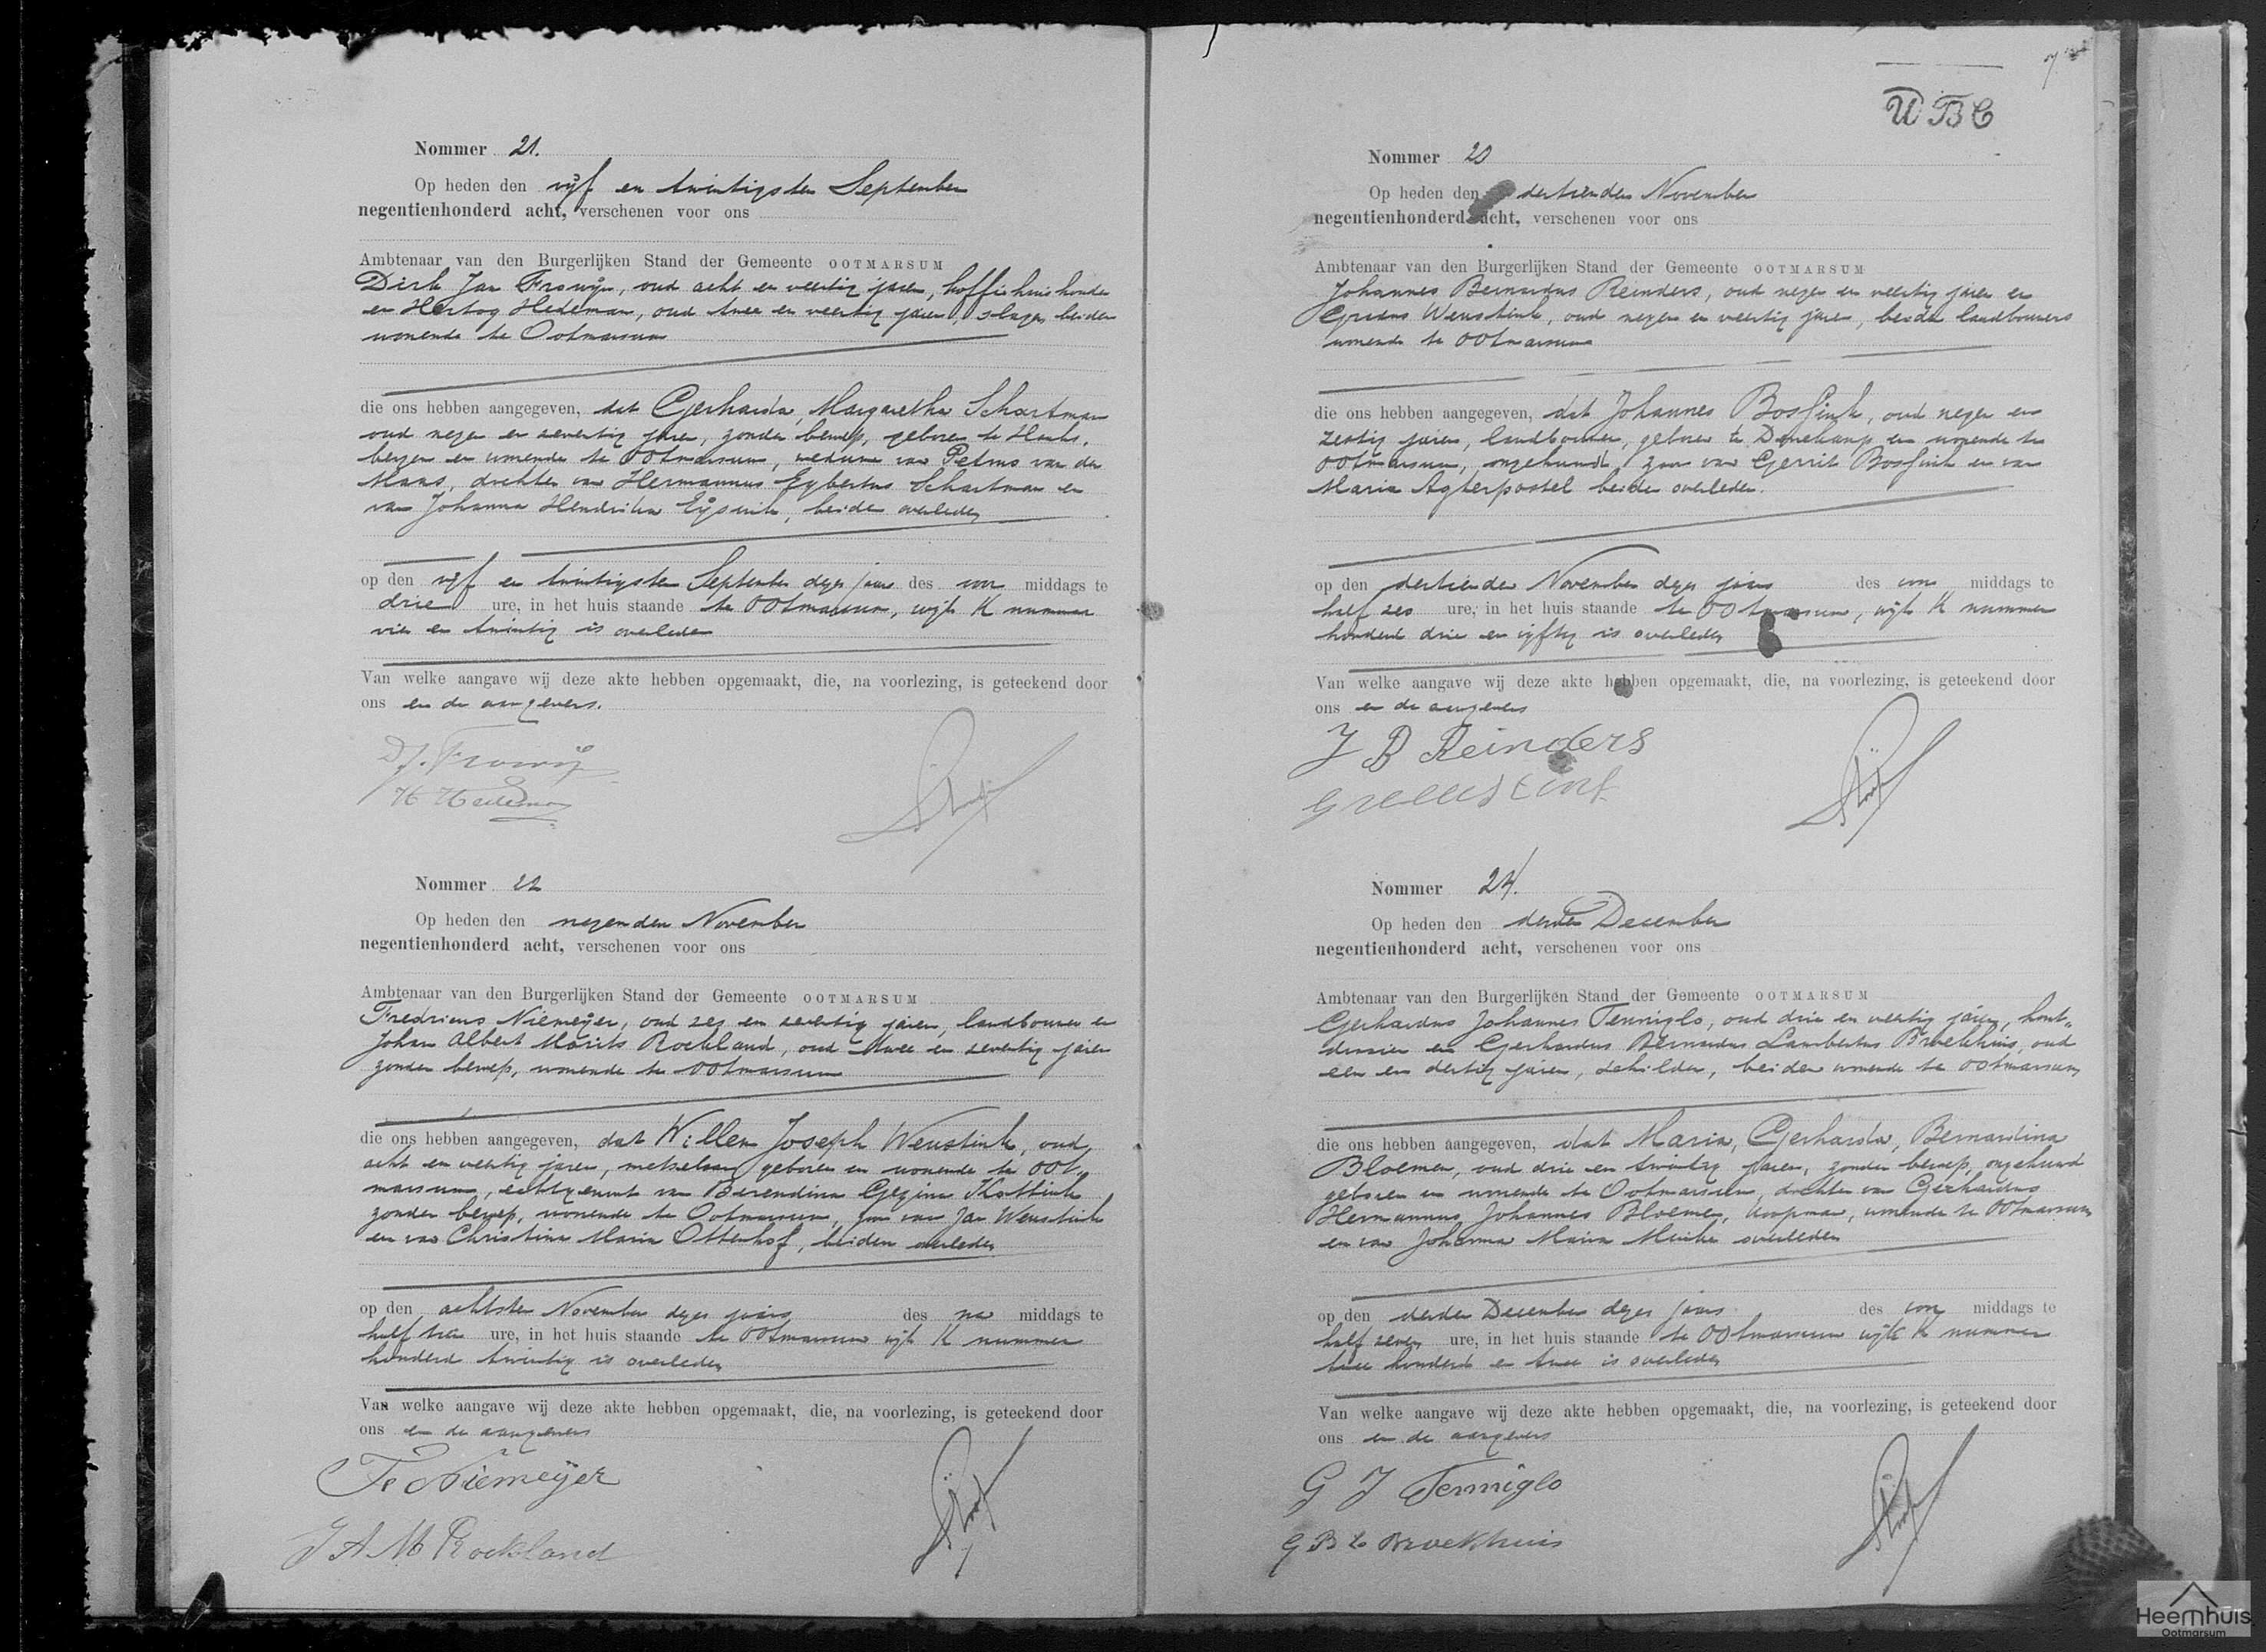 Nommer 21.
Op heden den vijf en twintigsten September
negentienhonderd acht, verschenen voor ons
Ambtenaar van den Burgerlijken Stand der Gemeente OOTMARSUM
Dirk Jan Frowijn, oud acht en veertig jaren, koffiehuishouder
en Hertog Hedeman, oud twee en veertig jaren, slager, beiden
wonende te Ootmarsum
die ons hebben aangegeven, dat Gerharda, Margaretha Schartman
oud negen en zeventig jaren, zonder beroep, geboren te Haaks,
bergen en wonende te Ootmarsum, weduwe van Petrus van der
Maas, dochter van Hermannus Egbertus Schartman en
van Johanna Hendrika Eijsink, beiden overleden
op den vijf en twintigsten September dezes jaars des voor middags te
drie ure, in het huis staande te Ootmarsum, wijk K nummer
vier en twintig is overleden
Van welke aangave wij deze akte hebben opgemaakt, die, na voorlezing, is geteekend door
ons en de aangevers.
D.J. Frowijn
H Hedeman
Nommer 22
Op heden den negenden November
negentienhonderd acht, verschenen voor ons
Ambtenaar van den Burgerlijken Stand der Gemeente OOTMARSUM
Fredricus Niemeijer, oud zes en zeventig jaren, landbouwer en
Johan Albert Morits Rockland, oud twee en zeventig jaren
zonder beroep, wonende te Ootmarsum
die ons hebben aangegeven, dat Willem Joseph Weustink, oud
acht en veertig jaren, metselaar, geboren en wonende te Oot,,
marsum, echtgenoot van Berendina Gezina Kottink
zonder beroep, wonende te Ootmarsum, zoon van Jan Weustink
en van Christina Maria Ottenhof, beiden overleden
op den achtsten November dezes jaars des na middags te
half ure, in het huis staande te Ootmarsum wijk K nummer
honderd twintig is overleden
Van welke aangave wij deze akte hebben opgemaakt, die, na voorlezing, is geteekend door
ons en de aangevers
Fr Niemeijer
J A M Rockland
U B C
Nommer 23
Op heden den dertienden November
negentienhonderd acht, verschenen voor ons
Ambtenaar van den Burgerlijken Stand der Gemeente OOTMARSUM
Johannes Bernardus Reinders, oud negen en veertig jaren en
Gradus Weustink, oud negen en veertig jaren, beiden landbouwers
wonende te Ootmarsum
die ons hebben aangegeven, dat Johannes Bosfink, oud negen en
zestig jaren, landbouwer, geboren te Denekamp en wonende te
Ootmarsum, ongehuwd, zoon van Gerrit Bosfink en van
Maria Agterpostel beiden overleden.
op den dertienden November dezes jaars des voor middags te
half zes ure, in het huis staande te Ootmarsum, wijk K nummer
honderd drie en vijftig is overleden
Van welke aangave wij deze akte hebben opgemaakt, die, na voorlezing, is geteekend door
ons en de aangevers
J B Reinders
G Weustink
Nommer 24.
Op heden den derden December
negentienhonderd acht, verschenen voor ons
Ambtenaar van den Burgerlijken Stand der Gemeente OOTMARSUM
Gerhardus Johannes Tenniglo, oud drie en veertig jaren, hout,,
draaier en Gerhardus Bernardus Lambertus Broekhuis, oud
een en dertig jaren, schilder, beiden wonende te Ootmarsum
die ons hebben aangegeven, dat Maria, Gerharda, Bernardina
Bloemen, oud drie en twintig jaren, zonder beroep, ongehuwd
geboren en wonende te Ootmarsum, dochter van Gerhardus
Hermannus Johannes Bloemen, koopman, wonende te Ootmarsum
en van Johanna Maria overleden
op den derden December dezes jaars des voor middags te
half zeven ure, in het huis staande te Ootmarsum wijk K nummer
twee honderd en twee is overleden
Van welke aangave wij deze akte hebben opgemaakt, die, na voorlezing, is geteekend door
ons en de aangevers
G J Tenniglo
G B L Broekhuis
Heemhuis
Ootmarsum